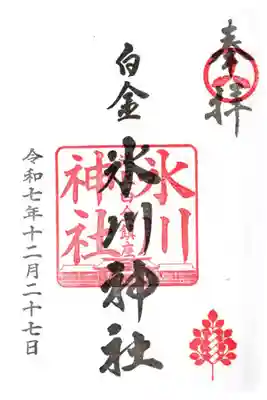 奉拝
白金
氷川神社
氷川
神社
令和七年十二月二十七日